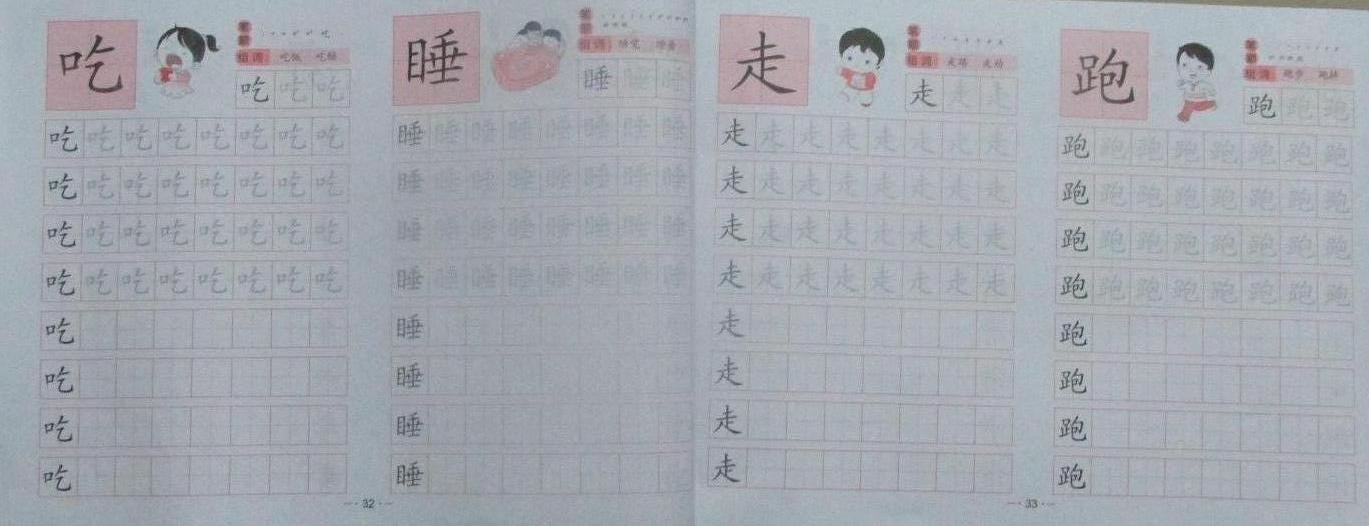 吃
笔顺
组词 吃饭
吃 吃 吃
吃 吃 吃 吃 吃 吃 吃 吃
吃 吃 吃 吃 吃 吃 吃 吃
吃 吃 吃 吃 吃 吃 吃 吃
吃 吃 吃 吃 吃 吃 吃 吃
吃
吃
吃
吃
睡
笔顺
组词 睡觉 睡着
睡 睡 睡
睡 睡 睡 睡 睡 睡 睡 睡
睡 睡 睡 睡 睡 睡 睡 睡
睡 睡 睡 睡 睡 睡 睡 睡
睡 睡 睡 睡 睡 睡 睡 睡
睡
睡
睡
睡
32
走
笔顺
组词 走路 走动
走 走 走
走 走 走 走 走 走 走 走
走 走 走 走 走 走 走 走
走 走 走 走 走 走 走 走
走 走 走 走 走 走 走 走
走
走
走
走
跑
笔顺
组词 跑步
跑 跑 跑
跑 跑 跑 跑 跑 跑 跑 跑
跑 跑 跑 跑 跑 跑 跑 跑
跑 跑 跑 跑 跑 跑 跑 跑
跑 跑 跑 跑 跑 跑 跑 跑
跑
跑
跑
跑
33